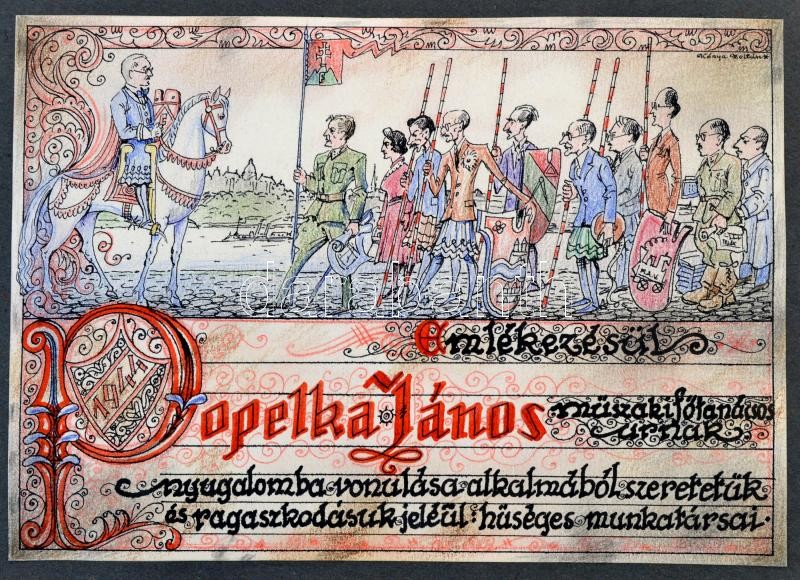 Kónya Zoltán
M.Á.V.
1944
Emlékezésül
Popelka János műszaki főtanácsos
urnak
nyugalomba vonulása alkalmából szeretetük
és ragaszkodásuk jeléül: hűséges munkatársai.